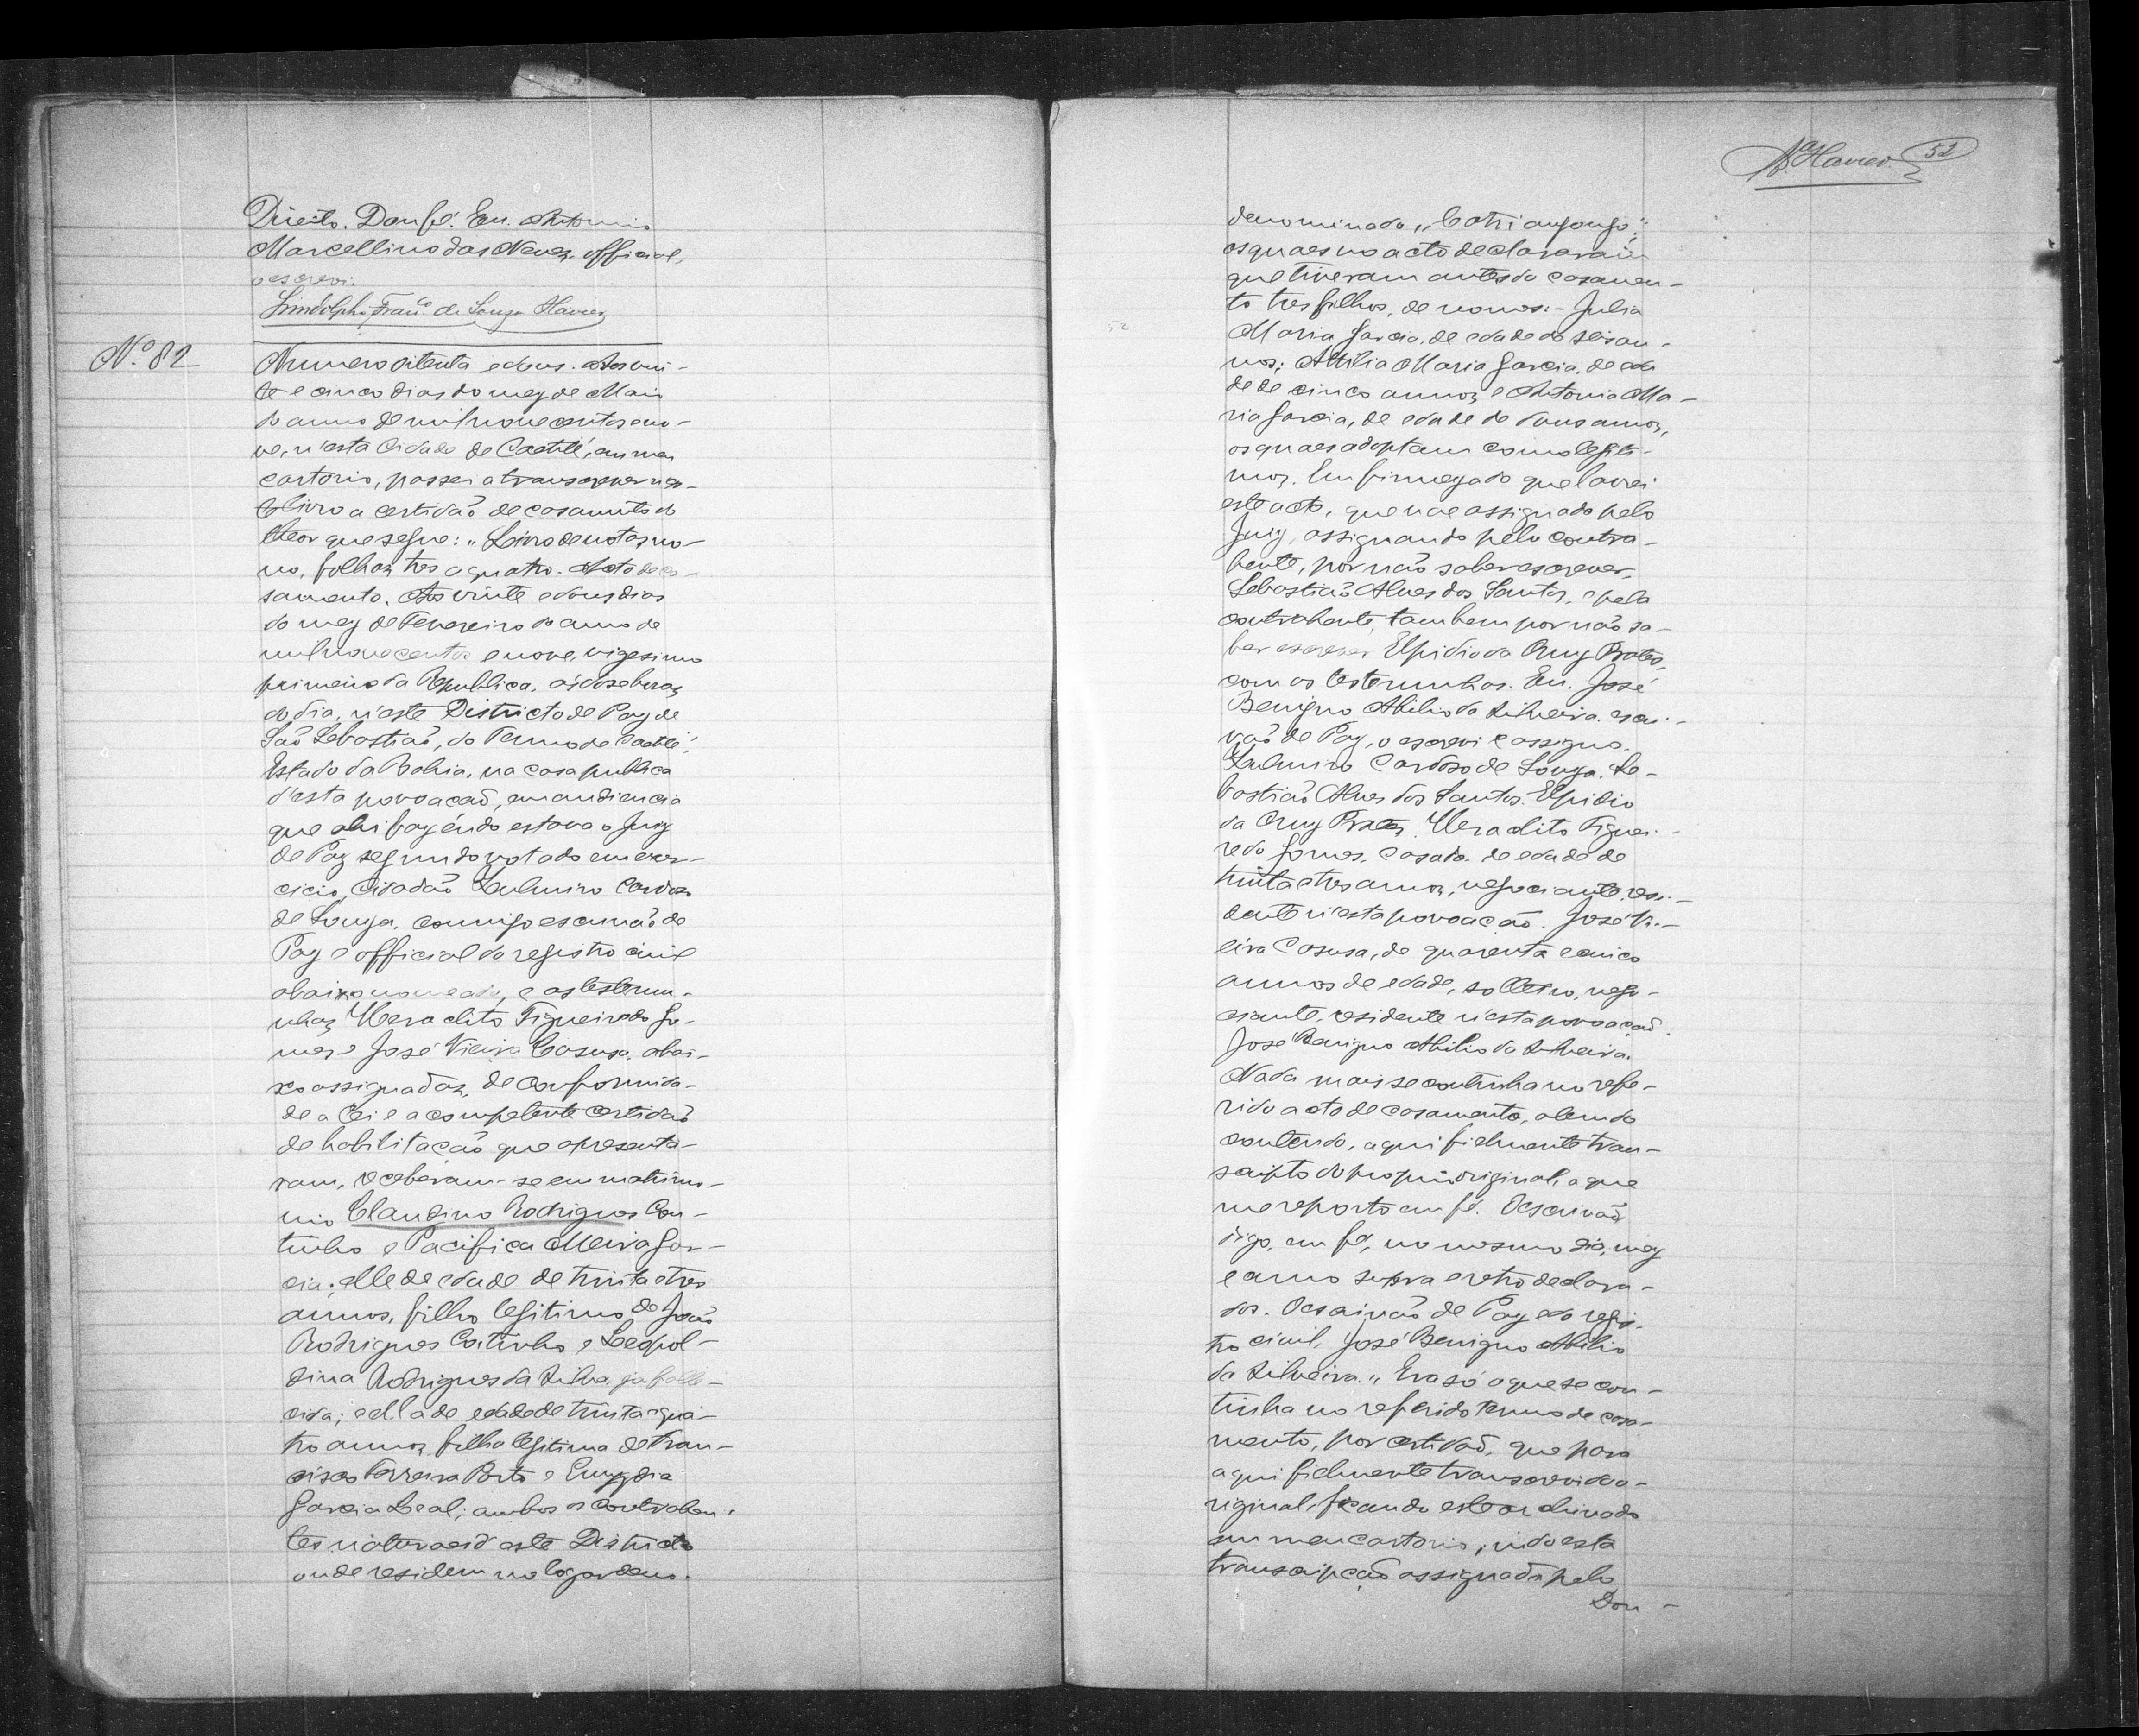 Direito. Dou fé. Eu. Antonio
Marcellino das Neves, official,
o escrevi.
Lindolpho Franco de Souza Xavier
Nº 82
Numero oitenta e dous. Aos vin-
te e cinco dias do mez de Maio
do anno de mil nove centos e no-
ve, n'esta Cidade de Caetité, em meu
cartorio, passei a transcrever nes-
te livro a certidão de casamento do
theor que segue: "Livro de notas no-
no, folhas tres a quatro. Acto de ca-
samento. Aos vinte e dous dias
do mez de Fevereiro do anno de
mil nove centos e nove, vigesimo
primeiro da Republica, ás dose horas
do dia, n'este Districto de Paz de
São Sebastião, do Termo de Caetité,
Estado da Bahia, na casa publica
d'esta povoacão, em audiencia
que ahi fazendo estava o Juiz
de Paz segundo votado em exer-
cicio, cidadão Zulmiro Cardoso
de Souza, commigo escrivão de
Paz e official do registro civil
abaixo nomeado, e as testemu-
nhas Heraclito Figueiredo Go-
mes e José Vieira Casusa, abai-
xo assignadas, de conformida-
de a lei e a competente certidão
de habilitação que apresenta-
ram, receberam-se em matrimo-
nio Claudino Rodrigues Cou-
tinho e Pacifica Meira Gar-
cia; elle de edade de trinta e tres
annos, filho legitimo de João
Rodrigues Coitinho e Leopol-
dina Rodrigues da Silva, ja falle-
cida; e ella de edade de trinta e qua-
tro annos, filha legitima de Fran-
cisco Ferreira Porto e Emygdia
Garcia Leal; ambos os contrahen-
tes naturaes d'este Districto
onde residem no logar deno-
Xavier 52
denominado,
os quaes no acto declararam
que tiveram antes do casamen-
to tres filhos, de nomes: - Julia
Maria Garcia, de edade de seis an-
nos; Attilia Maria Garcia, de eda
de de cinco annos e Antonia Ma-
ria Garcia, de edade de dous annos,
os quaes adoptam como legiti-
mos. Em firmeza do que lavrei
este acto, que vae assignado pelo
Juiz, assignando pelo contra-
hente, por não saber escrever,
Sebastião Alves dos Santos, e pela
contrahente, tambem por não sa-
ber escrever Elpidio da Cruz Prates,
com as testemunhas. Eu. José
Benigno Abilio da Silveira, escri-
vão de Paz, o escrevi e assigno.
Zulmiro Cardoso de Souza. Se-
bastião Alves dos Santos. Elpidio
da Cruz Prates. Heraclito Figuei-
redo Gomes, casado, de edade de
trinta e tres annos, negociante, resi-
dente n'esta povoacão. José Vi-
eira Casusa, de quarenta e cinco
annos de edade, solteiro, nego-
ciante, residente n'esta povoacão.
José Benigno Abilio da Silveira.
Nada mais se continha no refe-
rido acto de casamento, alem do
contendo, aqui fielmente tran-
scripto do proprio original, a que
me reporto em fé. O escrivão
digo, em fé, no mesmo dia, mez
e anno supra e retro declara-
dos. O escrivão de Paz e do regis-
tro civil, José Benigno Abilio
da Silveira." Era só o que se con-
tinha no referido termo de casa-
mento, por certidão, que para
aqui fielmente transcrevi do o-
riginal, ficando este archivado
em meu cartorio; indo esta
transcripcão assignada pelo
Dou-